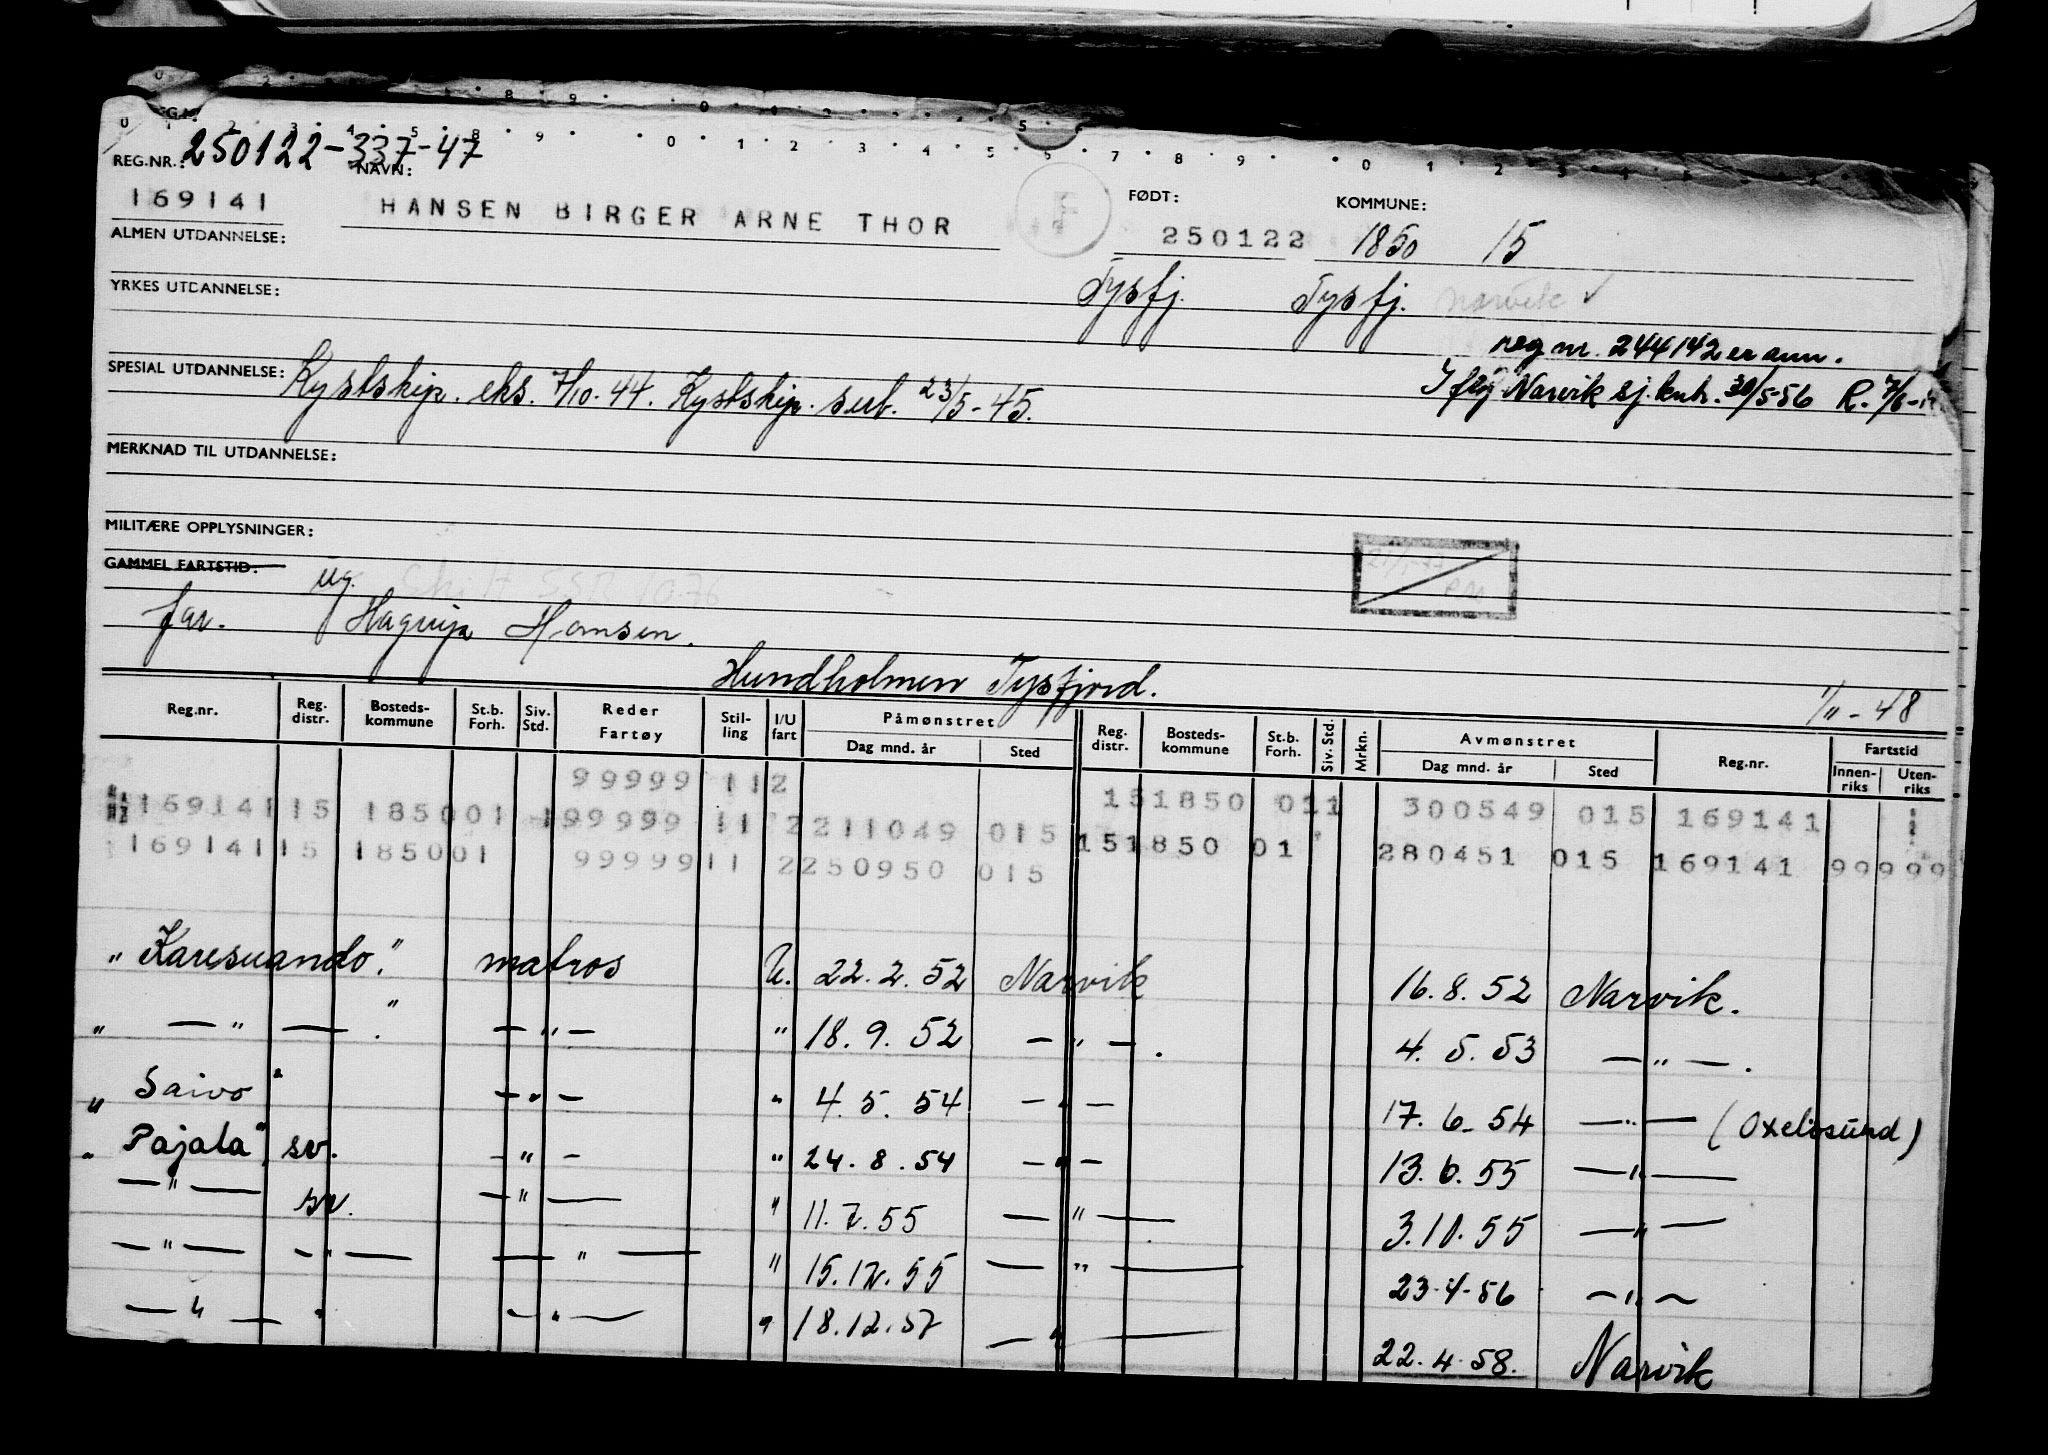 REG.NR.: 250122-337-47
NAVN:
169141 HANSEN BIRGER ARNE THOR
FØDT: KOMMUNE:
250122 1850 15
ALMEN UTDANNELSE:
Tysfj. Tysfj. Narvik ✓
YRKES UTDANNELSE:
reg nr. 244142 er ann.
Iflg Narvik sj. kntr. 30/5-56 R. 7/6-
SPESIAL UTDANNELSE: Kystskip. eks. 7/10.44. Kystskip. sert. 23/5-45.
MERKNAD TIL UTDANNELSE:
MILITÆRE OPPLYSNINGER:
GAMMEL FARTSTID: ug.
far. Hagrup Hansen.
Hundholmen Tysfjord.
1/11-48
Reg.nr. Reg. distr. Bosteds-kommune St.b. Forh. Siv. Std. Reder Fartøy Stil-ling I/U fart Påmønstret Dag mnd. år Sted Reg. distr. Bosteds-kommune St.b. Forh. Siv. Std. Mrkn. Avmønstret Dag mnd. år Sted Reg.nr. Fartstid Innen-riks Uten-riks
99999 112
169141 15 1850 01 1 99999 11 2 211049 015 151850 011 300549 015 169141
169141 15 1850 01 99999 11 2 250950 015 151850 01 280451 015 169141 99999
"Karesuando." matros U. 22.2.52 Narvik 16.8.52 Narvik.
" — " — ." — " — " 18.9.52 — " — . 4.5.53 — " — .
"Saivo" — " — " 4.5.54 — " — 17.6.54 — " — (Oxelösund)
"Pajala", sv. — " — " 24.8.54 — " — 13.6.55 — " —
— " — sv. — " — " 11.7.55 — " — 3.10.55 — " —
— " — — " — — " — " 15.12.55 — " — 23.4-56 — " —
— " — " — " — " 18.12.57 — " — 22.4.58. Narvik